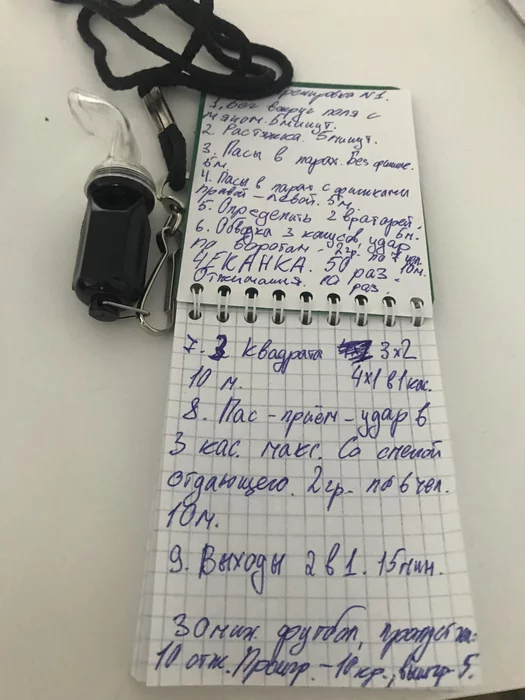 Тренировка №1.
1. Бег вокруг поля с
мячом. 6 минут.
2. Растяжка. 5 минут.
3. Пасы в парах. Без
5 м.
4. Пасы в парах с фишками
правой - левой. 5 м.
5. Определить 2 вратарей.
6. Обводка 3 конусов, удар 5 м.
по воротам. 2 гр. по 7 чел.
10 м.
ЧЕКАНКА. 50 раз -
Отжимания. 10 раз.
7. 3 Квадрата 3x2
10 м. 4x1 в 1 кас.
8. Пас - приём - удар в
3 кас. макс. Со сменой
отдающего. 2 гр. по 6 чел.
10 м.
9. Выходы 2 в 1. 15 мин.
30 мин. футбол,
10 отж. Проигр. - 10 кр., выигр 5.